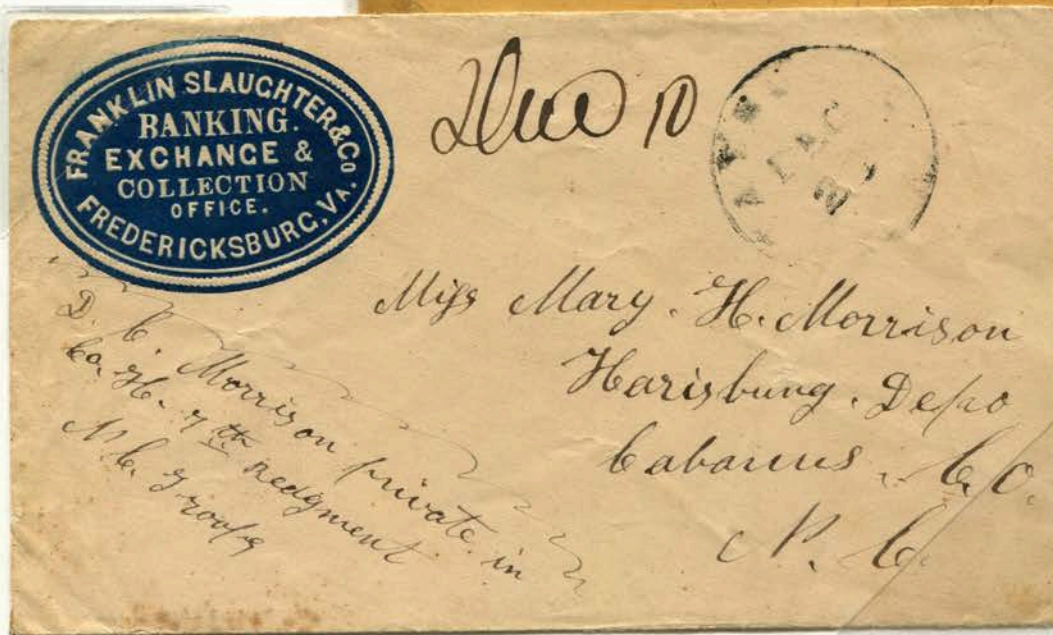 FRANKLIN SLAUGHTER & CO
BANKING.
EXCHANGE &
COLLECTION
OFFICE.
FREDERICKSBURG, VA.
Due 10
Miss Mary. H. Morrison
Harisburg. Depo
Cabarrus. C.O.
N. C.
D. C. Morrison private in
Co. H. 7th Redgment
N. C. Troops